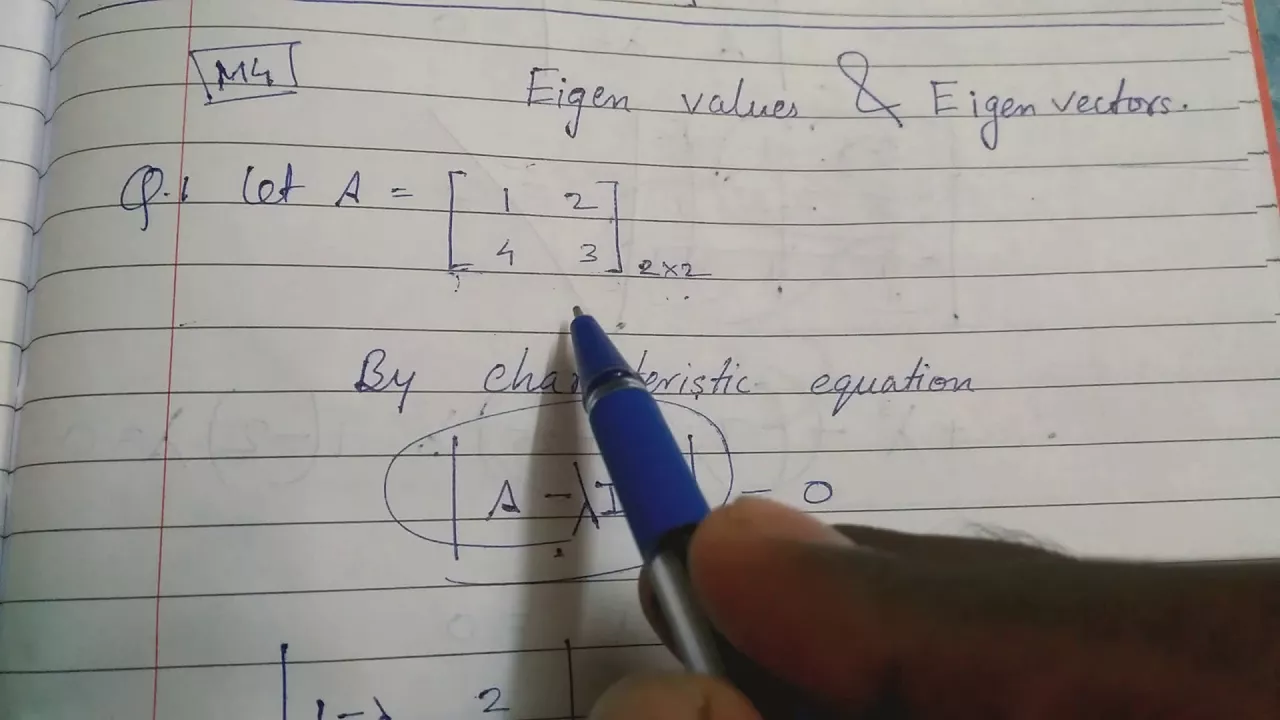 M4
Eigen values & Eigen vectors.
Q.1 Let A = [ 1 2
4 3 ] 2×2
By characteristic equation
| A - λI | = 0
| 1-λ 2 |